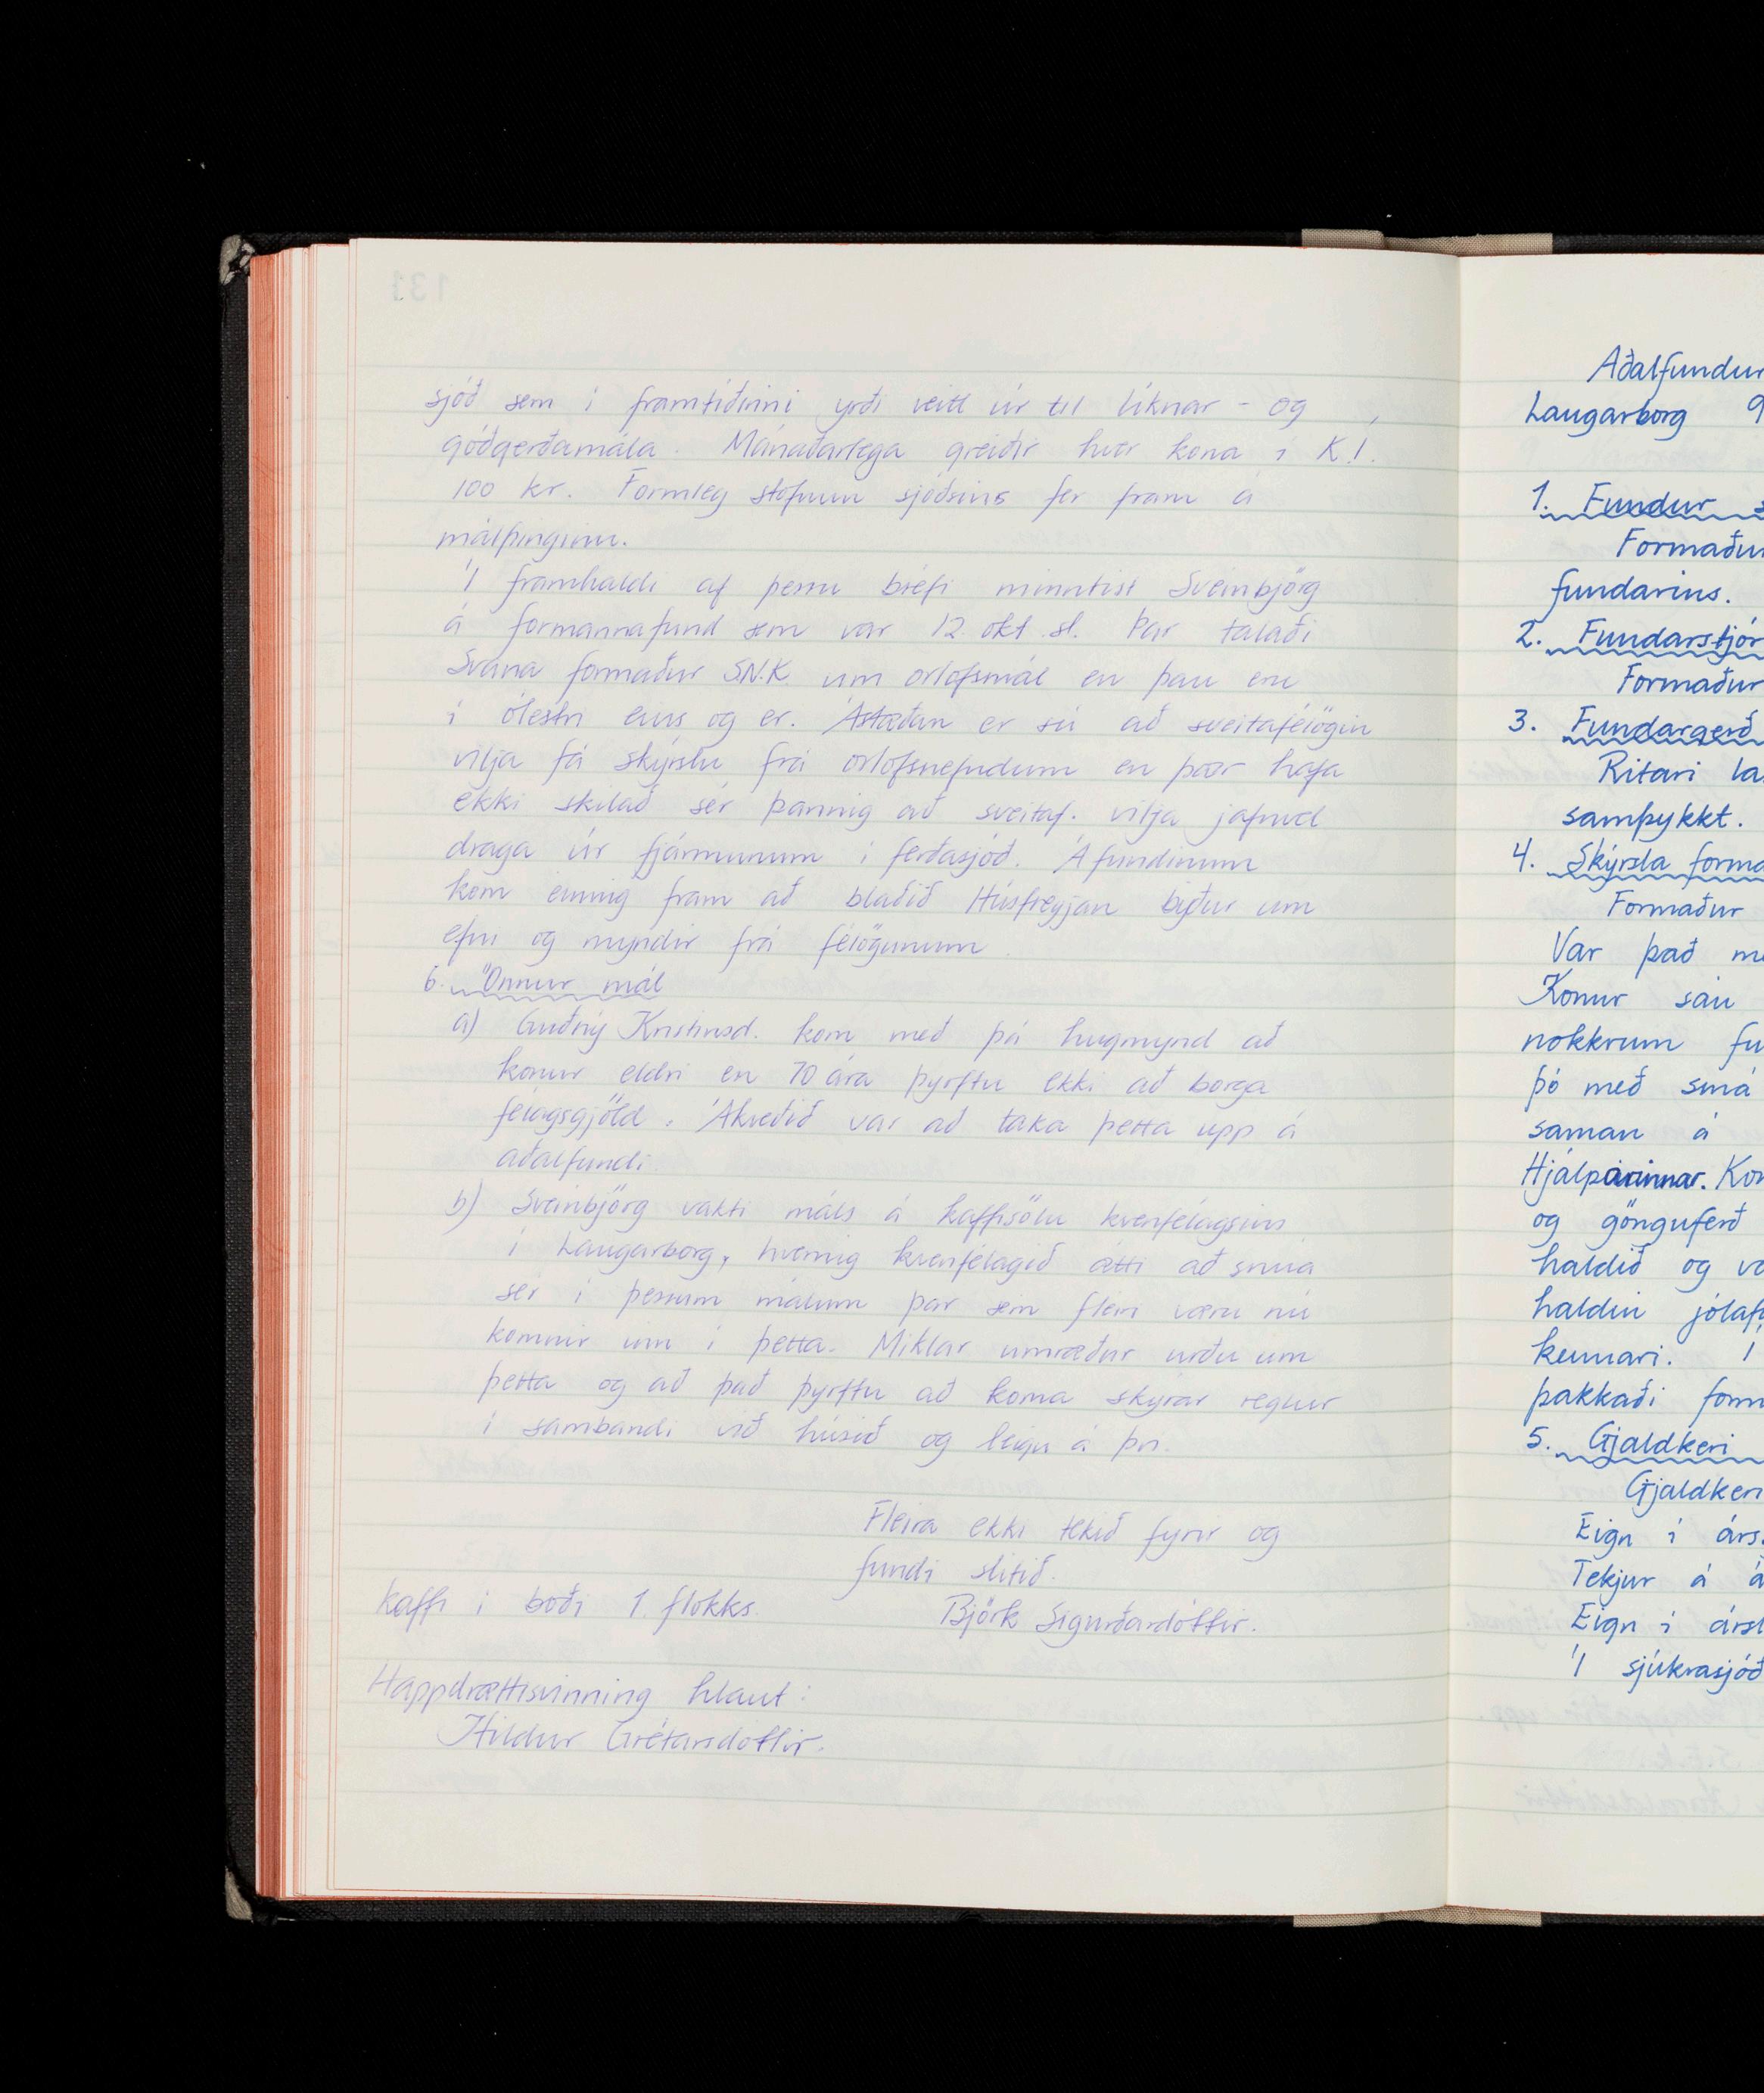 sjóð sem í framtíðinni yrði veitt úr til líknar- og
góðgerðamála. Mánaðarlega greiðir hver kona í K.Í.
100 kr. Formleg stofnun sjóðsins fer fram á
málþinginu.
Í framhaldi af þessu bréfi minntist Sveinbjörg
á formannafund sem var 12. okt. sl. Þar talaði
Svana formaður S.N.K. um orlofsmál en þau eru
í ólestri eins og er. Ástæðan er sú að sveitafélögin
vilja fá skýrslu frá orlofsnefndum en þær hafa
ekki skilað sér þannig að sveitaf. vilja jafnvel
draga úr fjármunum í ferðasjóð. Á fundinum
kom einnig fram að blaðið Húsfreyjan biður um
efni og myndir frá félögunum.
6. Önnur mál
a) Guðný Kristinsd. kom með þá hugmynd að
konur eldri en 70 ára þyrftu ekki að borga
félagsgjöld. Ákveðið var að taka þetta upp á
aðalfundi.
b) Sveinbjörg vakti máls á kaffisölu kvenfélagsins
í Laugarborg, hvernig kvenfélagið ætti að snúa
sér í þessum málum þar sem fleiri væru nú
komnir inn í þetta. Miklar umræður urðu um
þetta og að það þyrftu að koma skýrar reglur
í sambandi við húsið og leigu á því.
Fleira ekki tekið fyrir og
fundi slitið.
Kaffi í boði 1. flokks. Björk Sigurðardóttir.
Happdrættisvinning hlaut:
Hildur Grétarsdóttir.
131
Aðalfundur
Laugarborg 9
1. Fundur s
Formaður
fundarins.
2. Fundarstjór
Formaður
3. Fundargerð
Ritari la
samþykkt.
4. Skýrsla forma
Formaður
Var það me
Konur sáu
nokkrum fu
þó með smá
saman á
Hjálparinnar. Kon
og gönguferð
haldið og va
haldin jólaf
kennari. Í
þakkaði form
5. Gjaldkeri
Gjaldkeri
Eign í árs
Tekjur á á
Eign í ársl
Í sjúkrasjóð